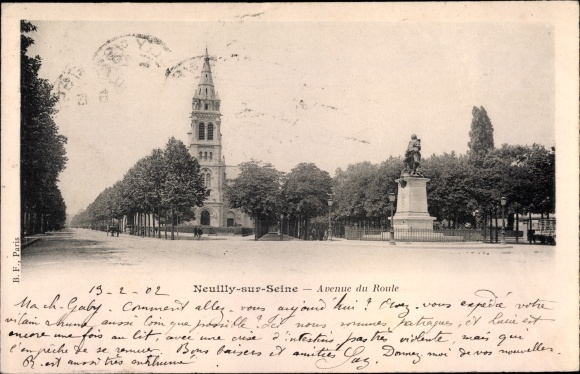 B. F., Paris
Neuilly-sur-Seine — Avenue du Roule
13-2-02
Gaby. Comment allez-vous aujourd'hui? Avez-vous expédié votre
vilain rhume aussi loin que possible? Ici nous sommes patraques, et est
encore une fois au lit, avec une crise d'intestins pas très violente, mais qui
l'empêche de se remuer. Bons baisers et amitiés Donnez moi de vos nouvelles.
R. est aussi très enrhumé